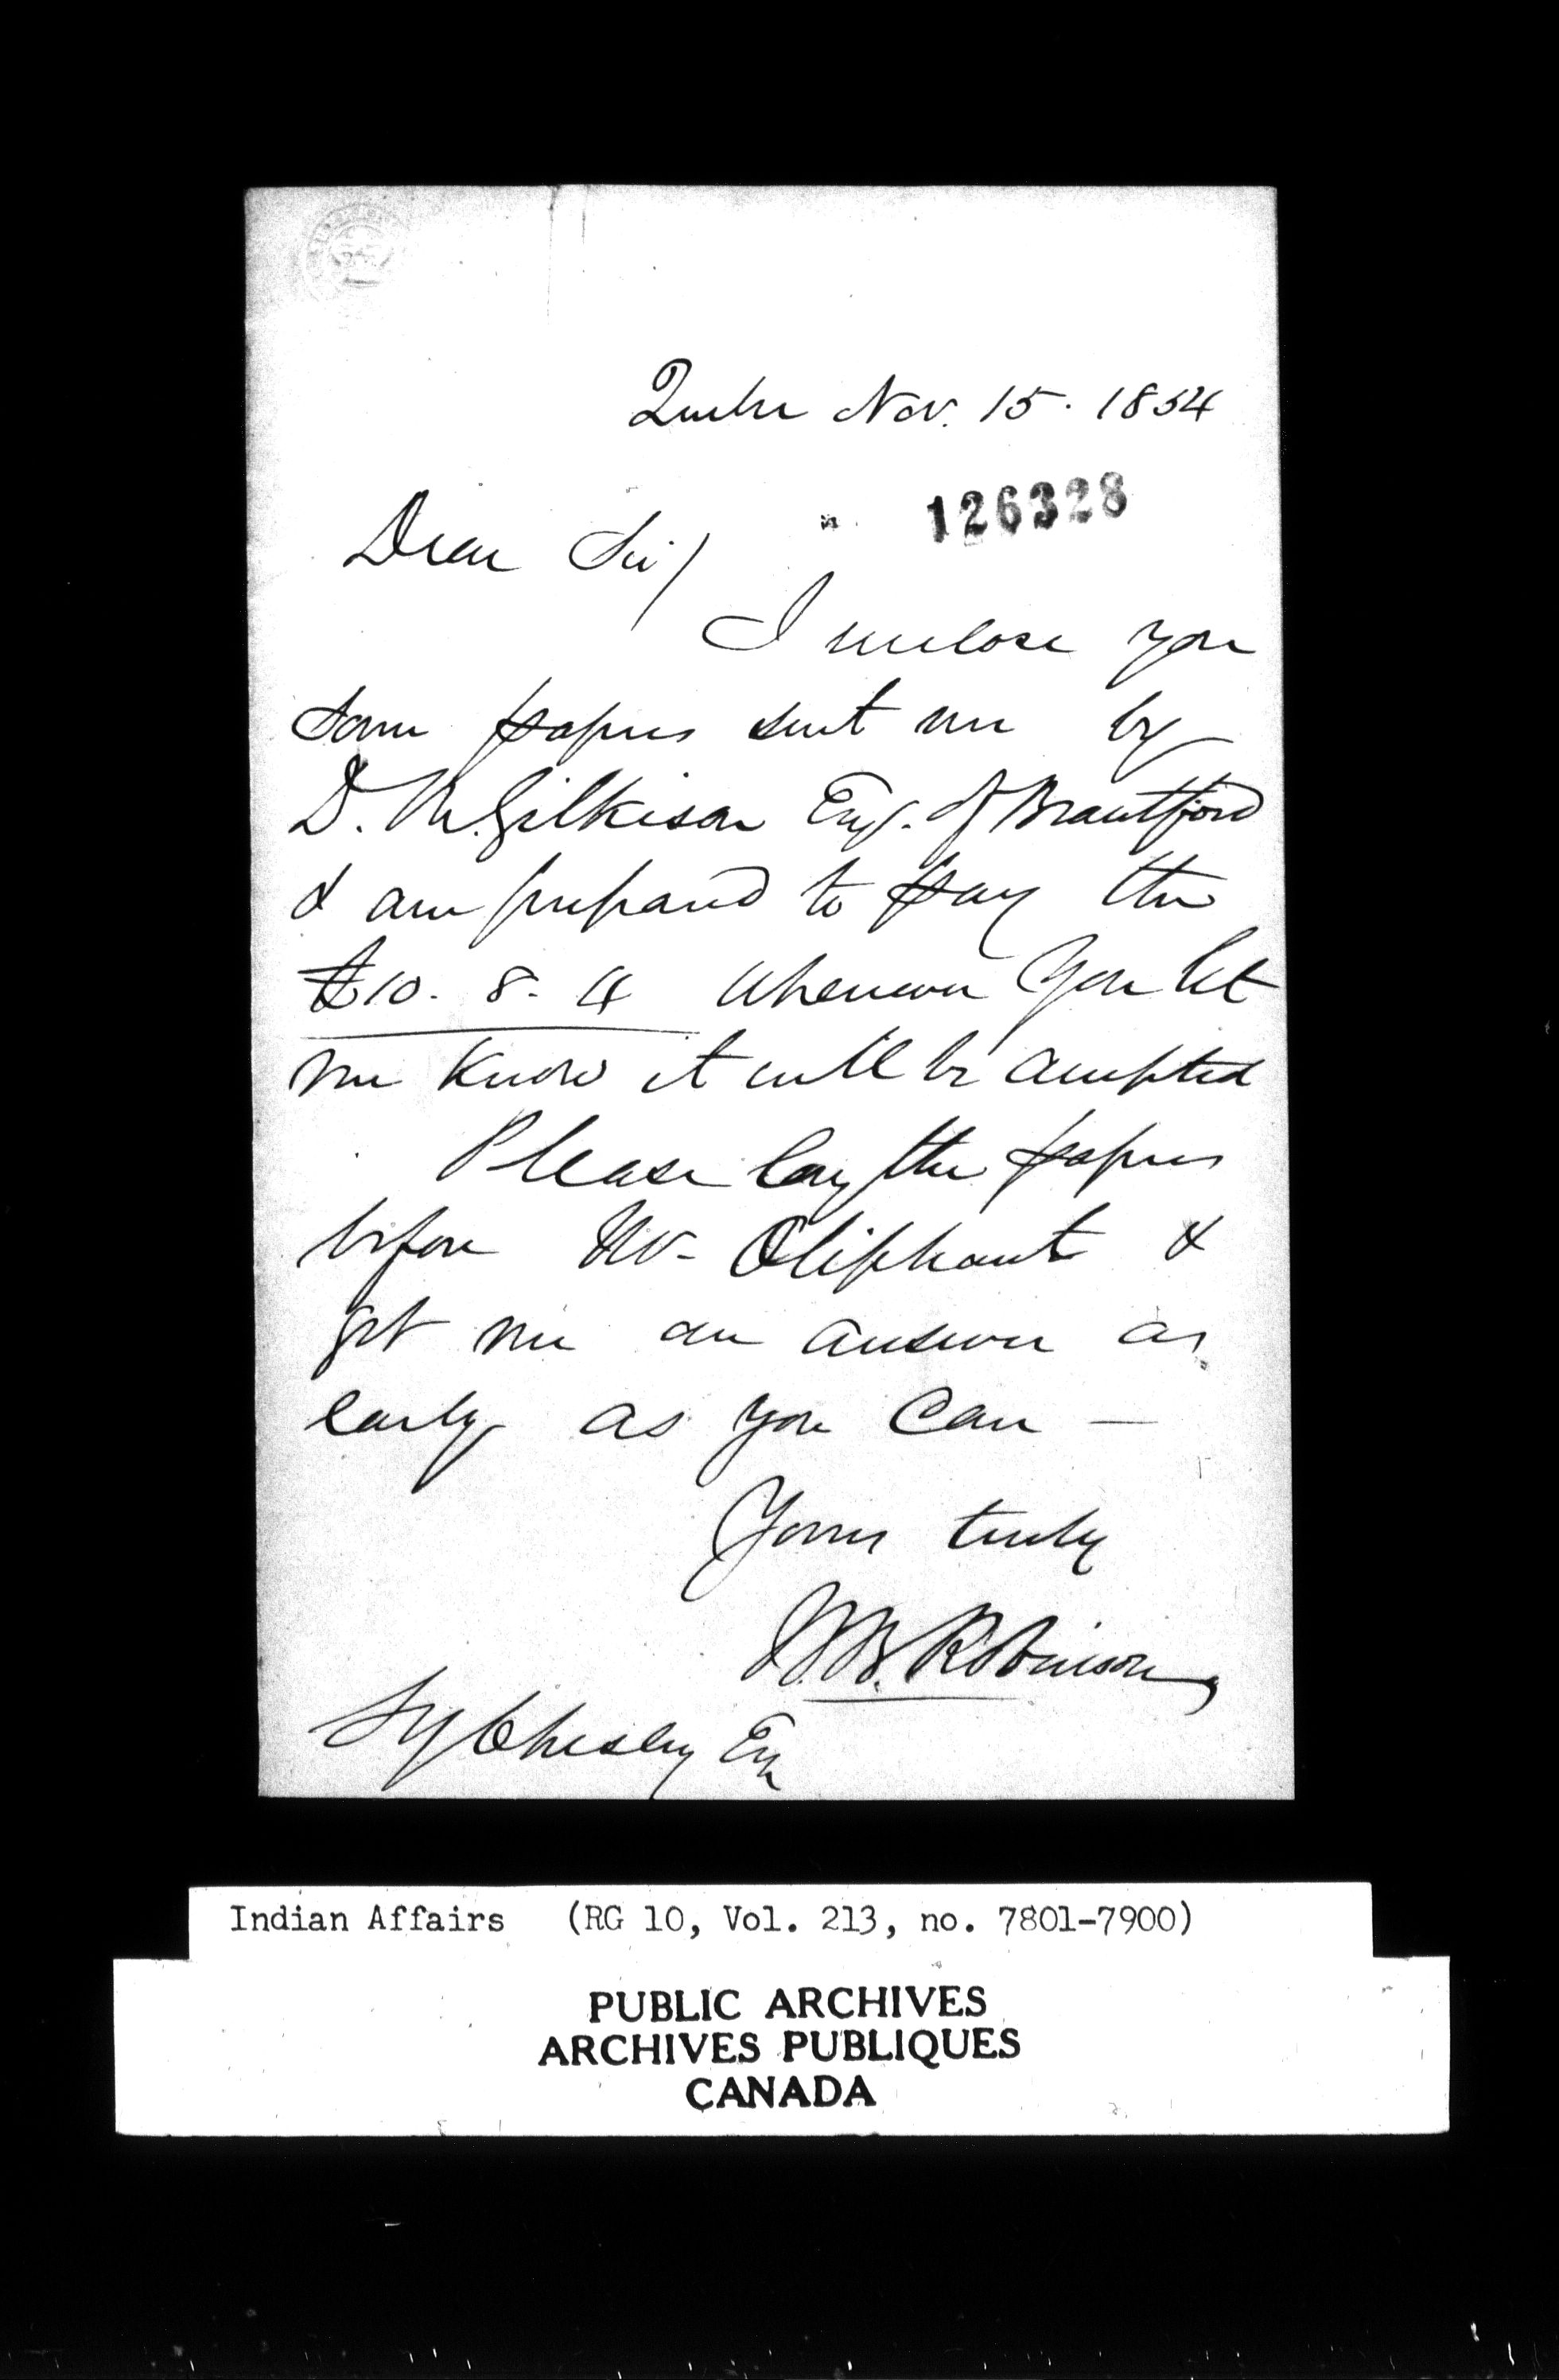 Quebec Nov. 15. 1854
126328
Dear Sir/
I enclose you
some papers sent me by
D. Gilkison Esq. of Brantford
& am prepared to pay the
£10. 8. 4 whenever you let
me know it will be accepted
Please lay the papers
before Mr Oliphant &
get me an answer as
early as you can —
Yours truly
W.B. Robinson
S Y Chesley Esq
Indian Affairs (RG 10, Vol. 213, no. 7801-7900)
PUBLIC ARCHIVES
ARCHIVES PUBLIQUES
CANADA